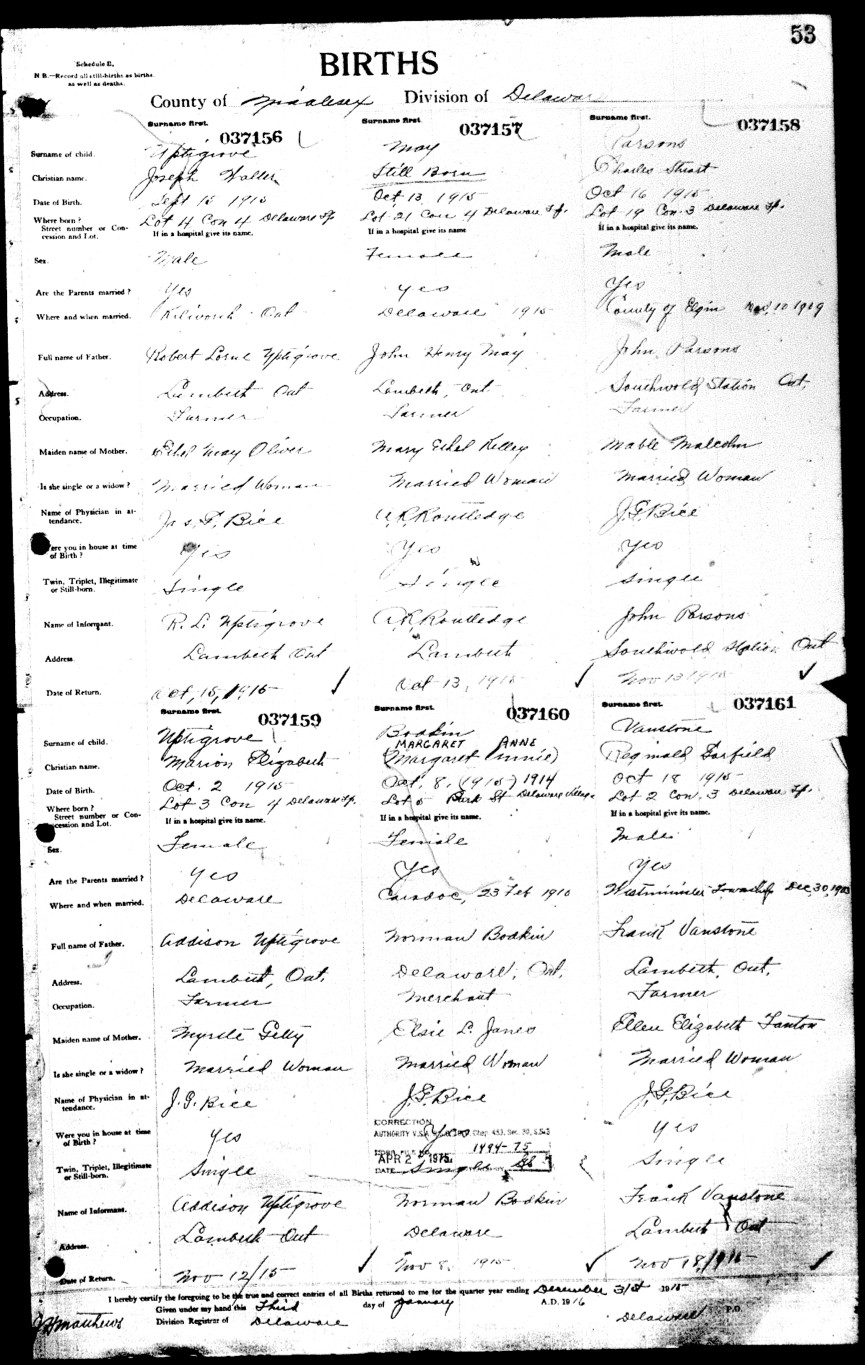 53
Schedule E.
N B.—Record all still-births as births.
as well as deaths.
BIRTHS
County of Middlesex Division of Delaware
Surname first. Surname first. Surname first.
037156 037157 037158
Surname of child. Uptigrove May Parsons
Christian name. Joseph Walter Still Born Charles Stuart
Date of Birth. Sept 15 1915 Oct 13, 1915 Oct 16 1915
Where born? Lot 4 Con 4 Delaware Tp. Lot 21 Con 4 Delaware Tp. Lot 19 Con. 3 Delaware Tp.
Street number or Con-
cession and Lot. If in a hospital give its name If in a hospital give its name If in a hospital give its name.
Sex. Male Female Male
Are the Parents married? Yes Yes Yes
Where and when married. Kilworth Ont Delaware 1915 County of Elgin Nov, 10 1909
Full name of Father. Robert Lorne Uptigrove John Henry May John Parsons
Address. Lambeth Ont Lambeth, Ont Southwold Station Ont.
Occupation. Farmer Farmer Farmer
Maiden name of Mother. Ethel May Oliver Mary Ethel Kelley Mable Malcolm
Is she single or a widow? Married Woman Married Woman Married Woman
Name of Physician in at-
tendance. Jas. G. Bice A.R. Routledge J.G. Bice
Were you in house at time
of Birth? Yes Yes Yes
Twin, Triplet, Illegitimate
or Still-born. Single Single Single
Name of Informant. R. L. Uptigrove A.R. Routledge John Parsons
Address Lambeth Ont Lambeth Southwold Station Ont
Date of Return. Oct, 15, 1915 Oct 13, 1915 Nov 13 1915
Surname first. Surname first. Surname first.
037159 037160 037161
Surname of child. Uptigrove Bodkin Vanstone
MARGARET ANNE
Christian name. Marion Elizabeth (Margaret Annie) Reginald Garfield
Date of Birth. Oct. 2 1915 Oct, 8, (1915) 1914 Oct 18 1915
Where born? Lot 3 Con 4 Delaware Tp. Lot 5 Park St Delaware Village Lot 2 Con. 3 Delaware Tp.
Street number or Con-
cession and Lot. If in a hospital give its name. If in a hospital give its name. If in a hospital give its name.
Sex. Female Female Male
Are the Parents married? Yes Yes Yes
Where and when married. Delaware Caradoc, 23 Feb 1910 Westminister Township Dec, 30,
Full name of Father. Addison Uptigrove Norman Bodkin Frank Vanstone
Address. Lambeth, Ont. Delaware, Ont, Lambeth, Ont,
Occupation. Farmer Merchant Farmer
Maiden name of Mother. Myrtle Getty Elsie L. Janes Ellen Elizabeth
Is she single or a widow? Married Woman Married Woman Married Woman
Name of Physician in at-
tendance. J.G. Bice J.G. Bice J.G. Bice
CORRECTION
Were you in house at time
of Birth? Yes Yes Yes
AUTHORITY
1494-75
APR 2 1975
DATE
Twin, Triplet, Illegitimate
or Still-born. Single Single Single
Name of Informant. Addison Uptigrove Norman Bodkin Frank Vanstone
Address. Lambeth Ont Delaware Lambeth Ont
Date of Return. Nov 12/15 Nov 8, 1915 Nov 18,/1915
I hereby certify the foregoing to be the true and correct entries of all Births returned to me for the quarter year ending December 31st 1915
Given under my hand this Third day of January A.D. 1916
Matthews Division Registrar of Delaware Delaware P.O.